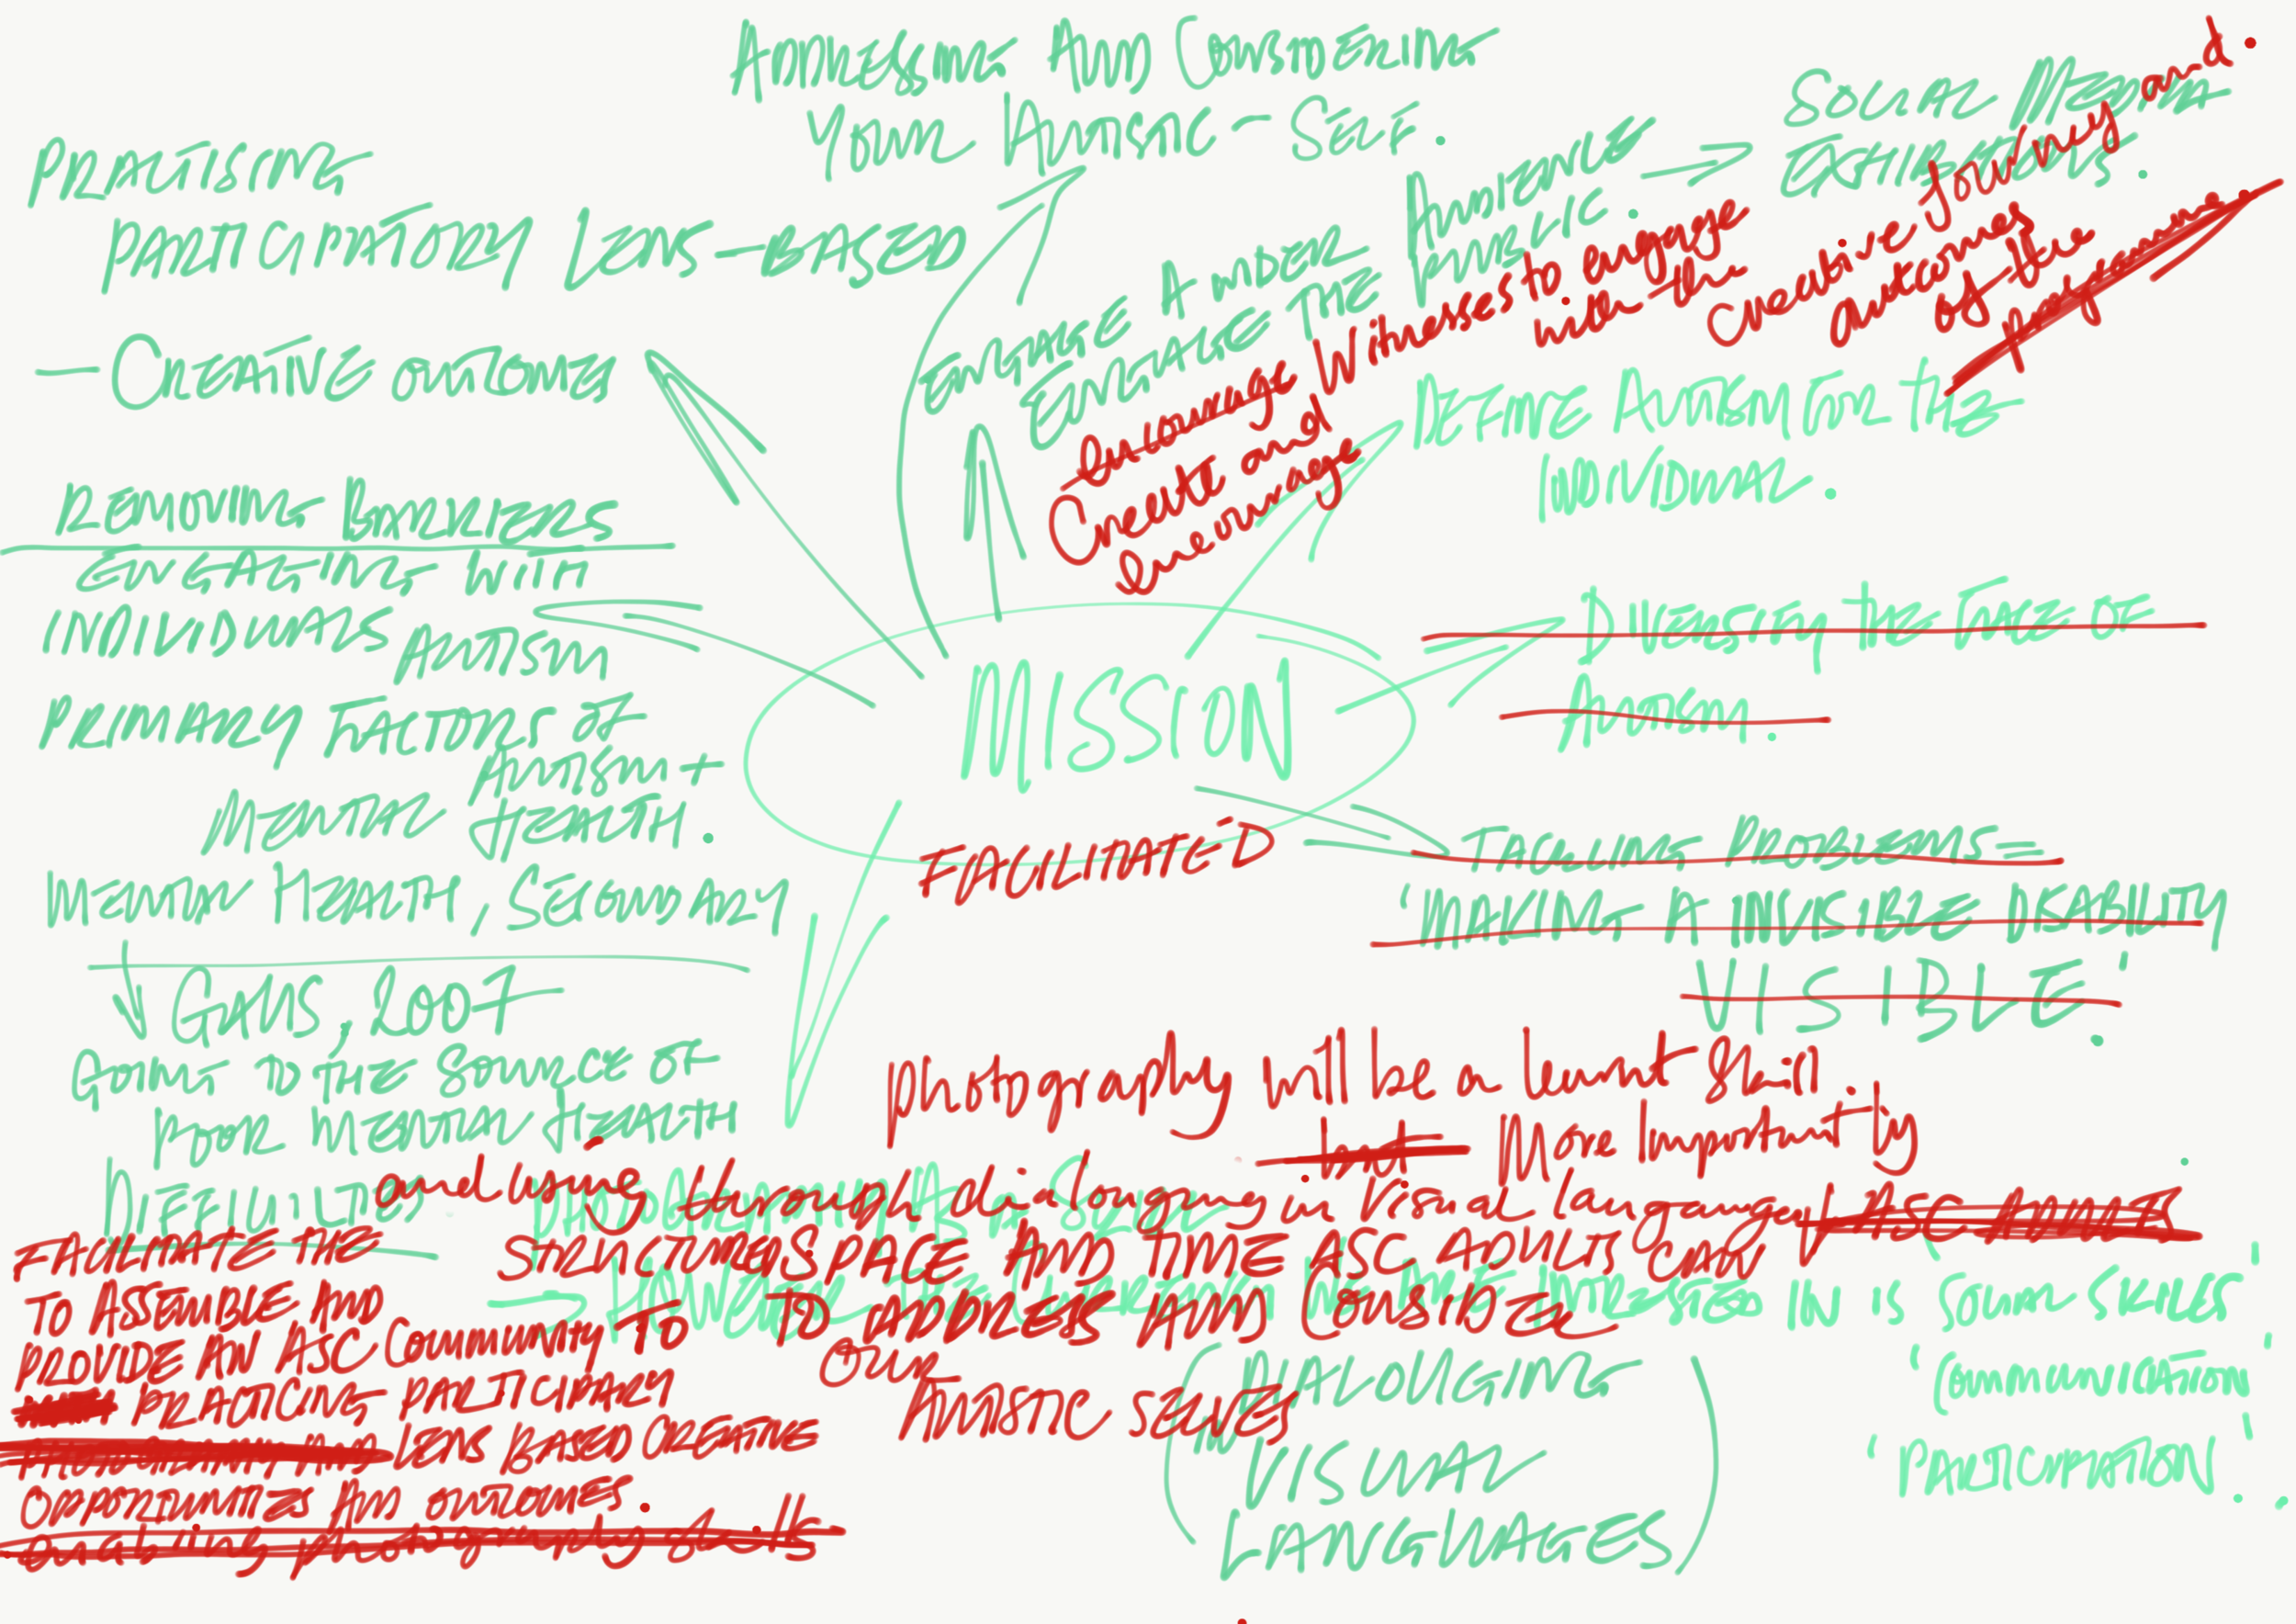 ADDRESSING AND CONSIDERING
YOUR AUTISTIC-SELF.
PRACTISING
PARTICIPATORY LENS-BASED
-CREATIVE OUTCOMES
ENGAGE A WIDER AUDIENCE
EDUCATE THE PUBLIC.
SOCIAL MEDIA
EXHIBITIONS.
encourage Witnesses to engage
Create and
encourage
with the
creative journey and
outcomes
of the
programme.
DEFINE AUTISM FOR THE
INDIVIDUAL.
REMOVING BARRIERS
ENGAGING WITH
INDIVIDUALS
AUTISM
PRIMARY FACTORS OF
AUTISM +
MENTAL HEALTH.
MENTAL HEALTH, SECONDARY
GAUS, 2007
GOING TO THE SOURCE OF
POOR MENTAL HEALTH
DIFFICULTIES
MISSION
FACILITATED
DIVERSITY THE FACE OF
AUTISM.
TACKLING PROBLEMS =
'MAKING A INVISIBLE DISABILITY
VISIBLE'.
photography will be a learnt skill.
but More Importantly
and using through dialoguing in visual language
STRUCTURED SPACE AND TIME ASC ADULTS CAN
TO ADDRESS AND CONSIDER
OUR
AUTISTIC SELVES
FACILITATE THE
TO ASSEMBLE AND
PROVIDE AN ASC Community TO
PRACTICING PARTICIPARY
LENS BASED CREATIVE
OPPORTUNITIES AND OUTCOMES.
enabling photography skills
INTERESTED IN IS SOCIAL SKILLS'
'COMMUNICATION'
'PARTICIPATION'..
DIALOUGING
IN
VISUAL
LANGUAGES